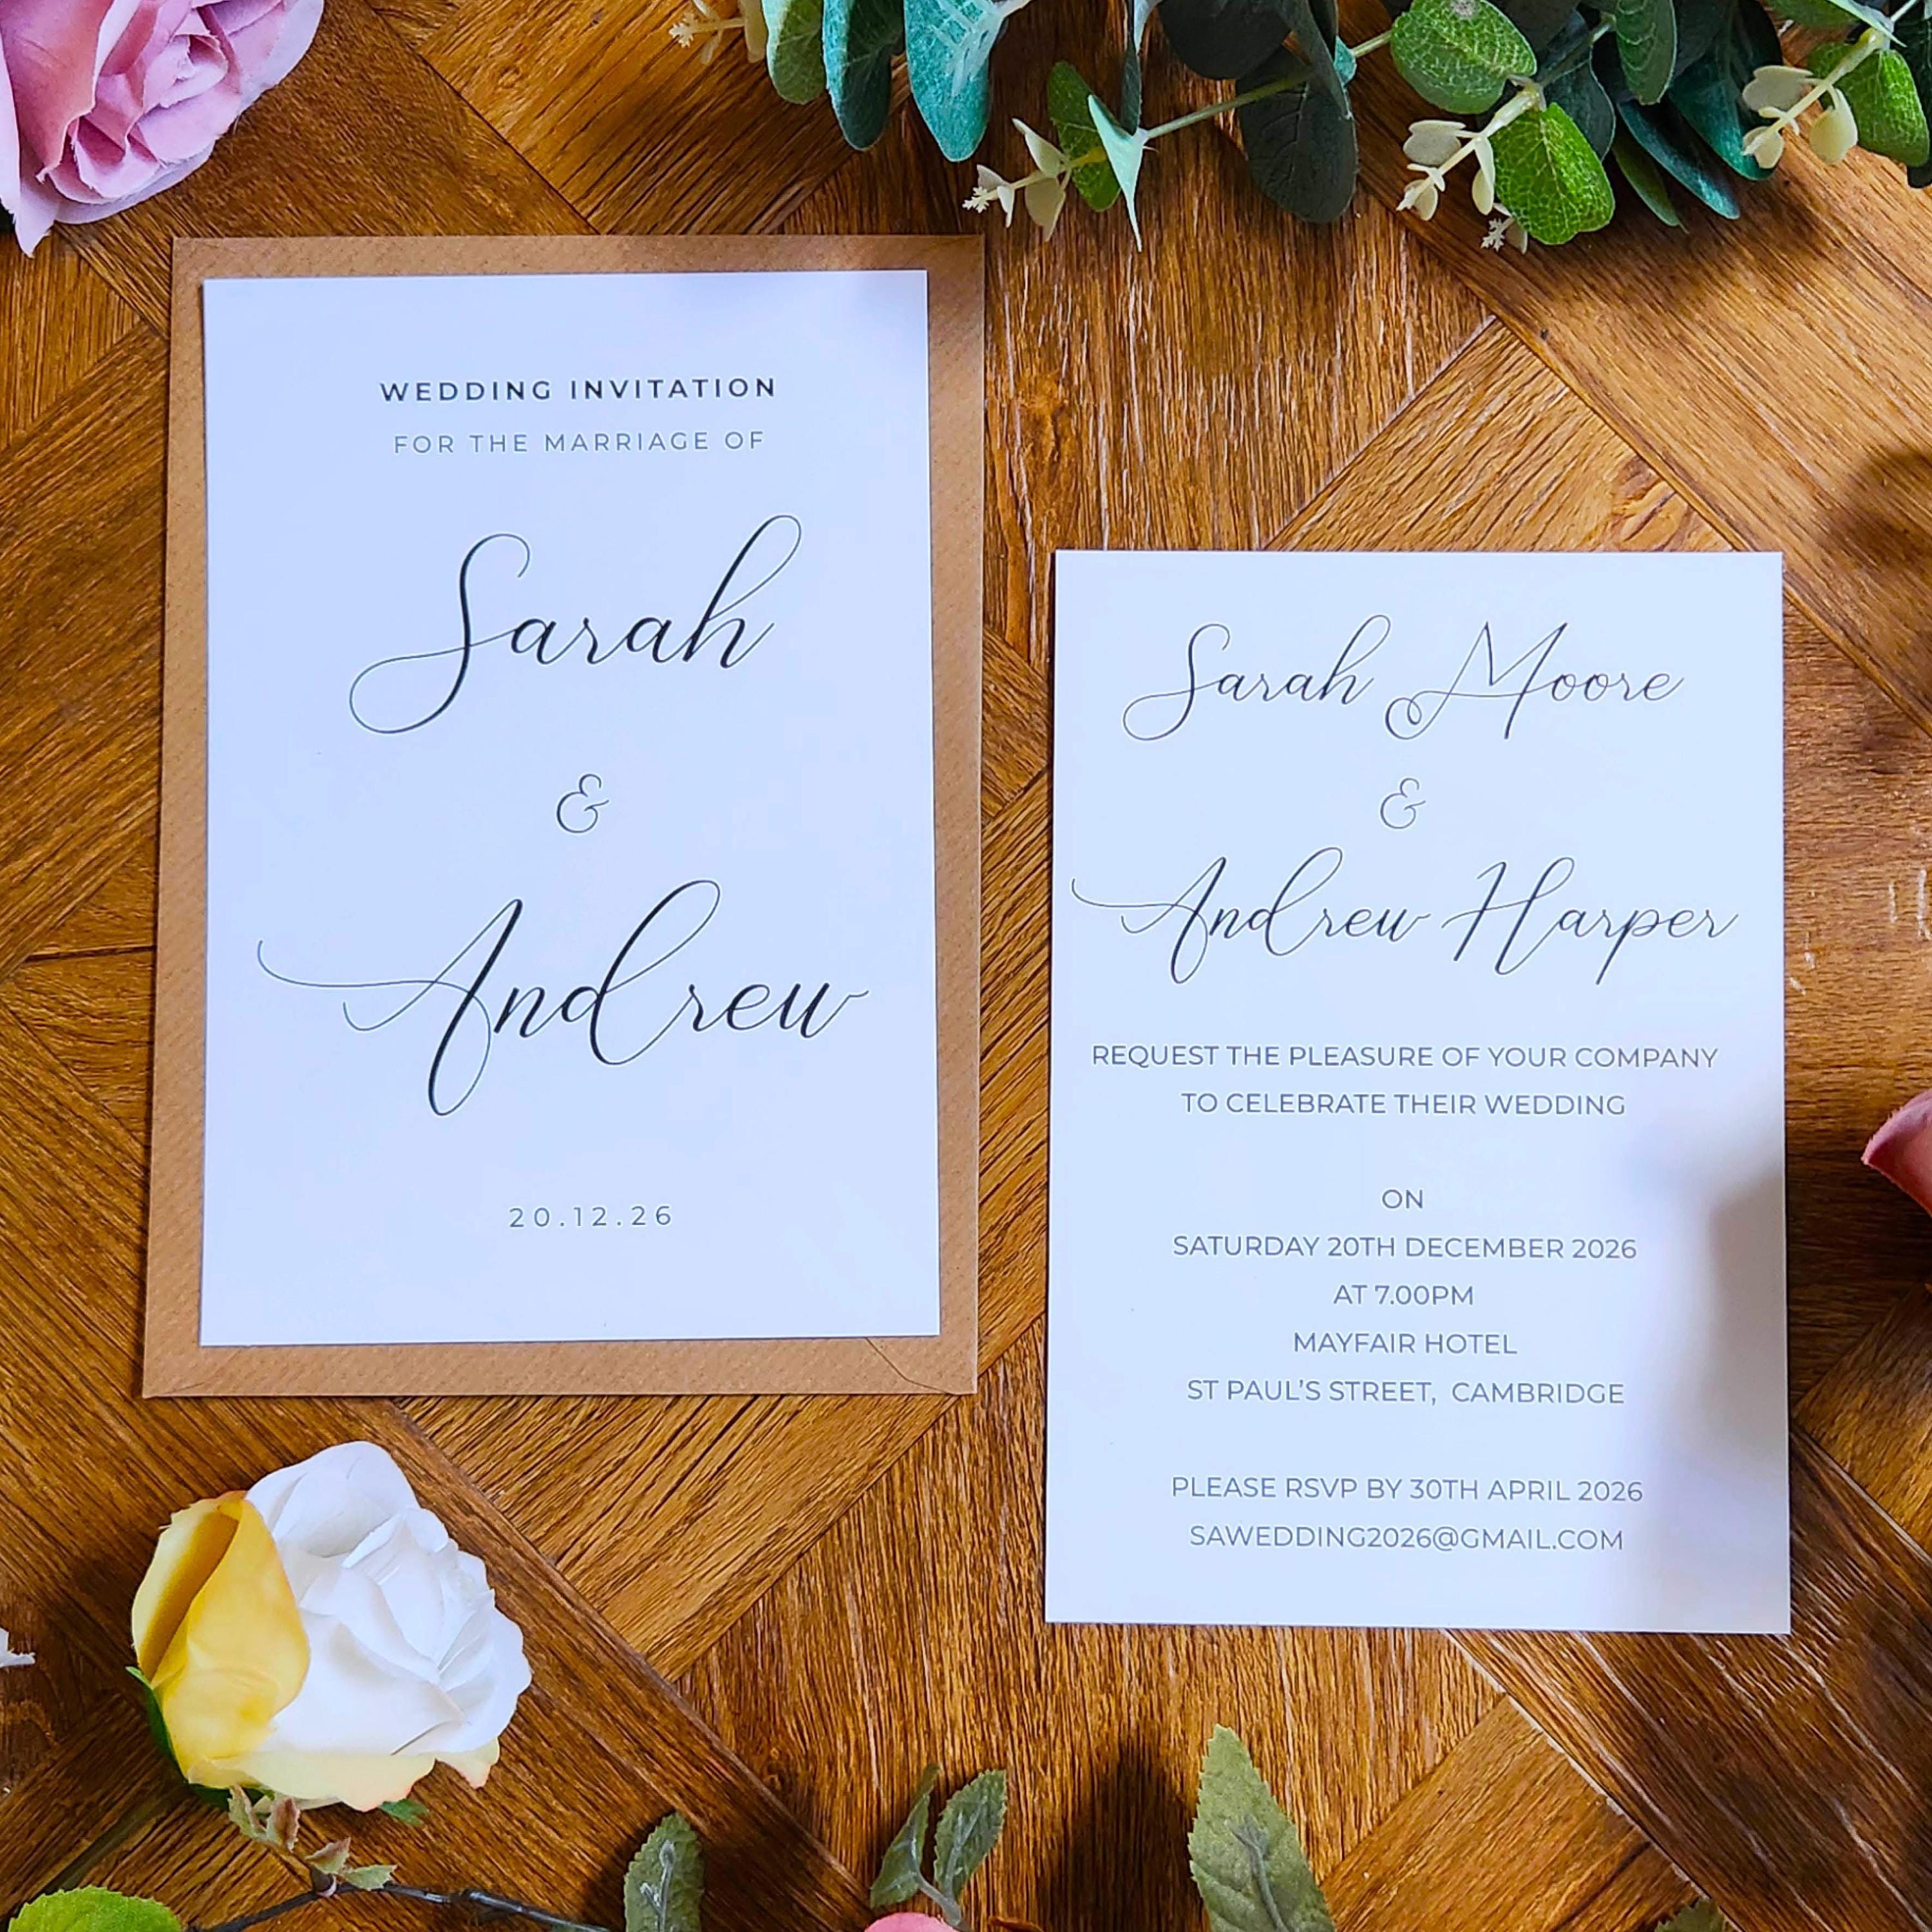 WEDDING INVITATION
FOR THE MARRIAGE OF
Sarah
&
Andrew
20.12.26
Sarah Moore
&
Andrew Harper
REQUEST THE PLEASURE OF YOUR COMPANY
TO CELEBRATE THEIR WEDDING
ON
SATURDAY 20TH DECEMBER 2026
AT 7.00PM
MAYFAIR HOTEL
ST PAUL'S STREET, CAMBRIDGE
PLEASE RSVP BY 30TH APRIL 2026
SAWEDDING2026@GMAIL.COM